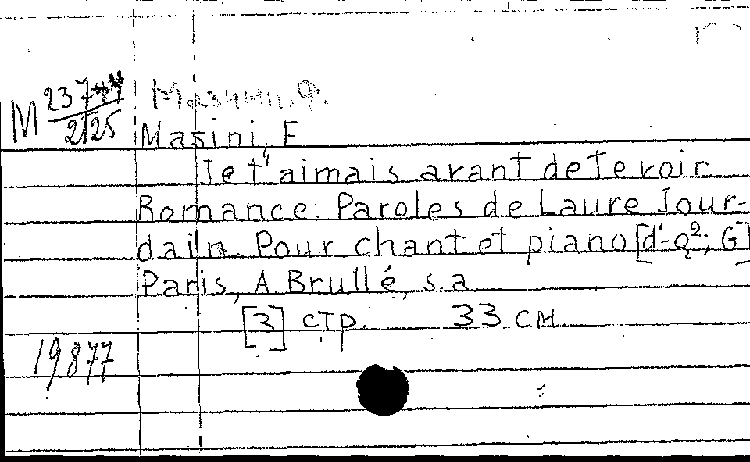 M 237-44
2/25
Мазини, Ф.
Masini, F
Je t'aimais avant de te voir.
Romance. Paroles de Laure Jour-
dain. Pour chant et piano [d'-g²; G]
Paris, A. Brullé, s.a.
[3] стр. 33 см
19877